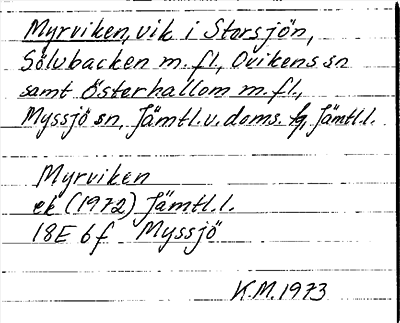 Myrviken, vik i Storsjön,
Sölvbacken m.fl, Ovikens sn
samt Österhallom m.fl.,
Myssjö sn, Jämtl.v.doms. Jämtl.l.
Myrviken
ek (1972) Jämtl.l.
18E 6f Myssjö
K.M.1973